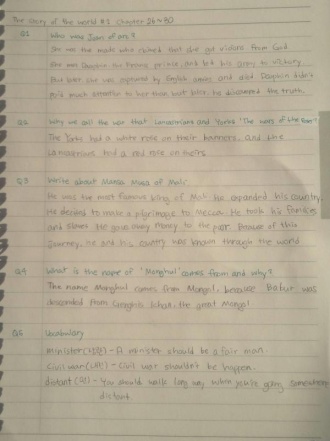 The story of the world #2 chapter 26~30
Q1 Who was Joan of arc?
She was the maid who claimed that she got visions from God.
She was Dauphin the missing prince, and led his army to victory.
But later she was captured by English army and also Dauphin didn't
paid much attention to her than but later, he discovered the truth.
Q2 Why we call the war that Lancastrians and Yorks 'The wars of the Roses'?
The Yorks had a white rose on their banners, and the
Lancastrians had a red rose on theirs.
Q3 Write about Mansa Musa of Mali.
He was the most famous king of Mali. He expanded his country.
He decided to make a pilgrimage to Mecca. He took his families
and slaves. He gave away money to the poor. Because of this
journey, he and his country was known through the world
Q4 What is the name of 'Monghul' comes from and why?
The name Monghul comes from Mongol, because Babur was
descended from Genghis Khan, the great Mongol
Q5 Vocabulary
minister - A minister should be a fair man.
Civil war (내전) - Civil war shouldn't be happen.
distant - You should walk long way when you're going somewhere
distant.